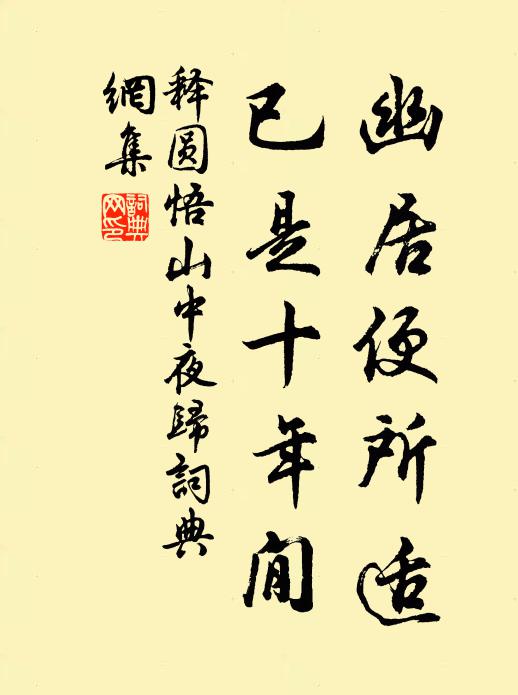 幽居便所适
已是十年间
释圆悟山中夜归詞典
網集
詞典
网印